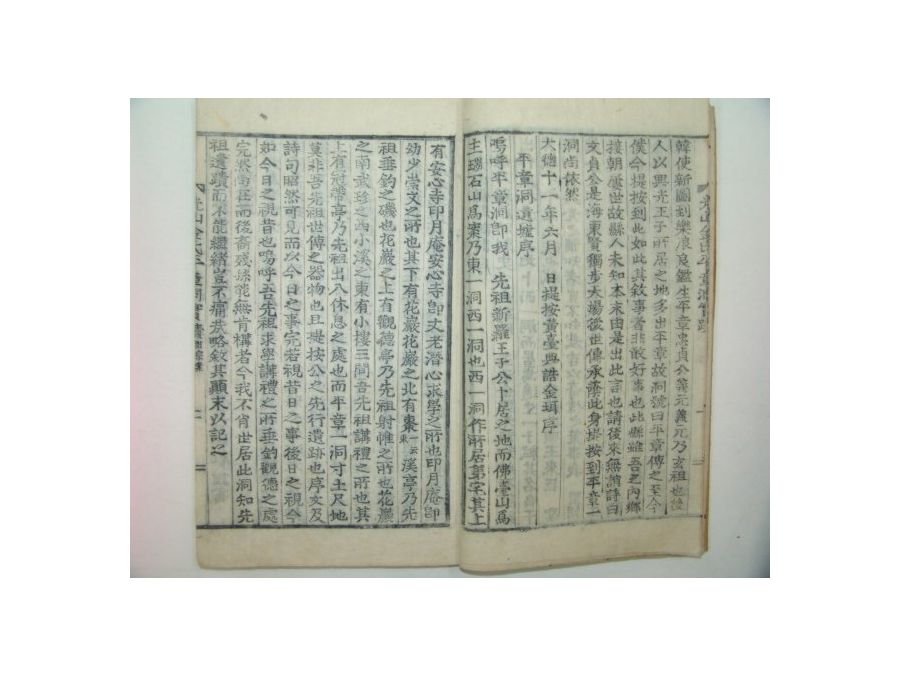 韓使新圖到樂浪良鑑生平章忠貞公義元乃玄祖也後
人以興光王子所居之地多出平章故洞號曰平章傳之至今
僕今提按到此如此其敘事者非敢好事也此縣雖吾之內鄉
接朝儒世故縣人未知本末由是出此言也請後來無誚詩曰
文貞今是海東賢獨步大場後世傳承蔭此身提按到平章一
洞尙依然
大德十一年六月 日提按黃臺典誥金珥序
平章洞遺墟序
嗚呼平章洞卽我 先祖新羅王子公卜居之地而佛臺山爲
主瑞石山爲案乃東一洞也西一洞也西一洞作所居第宅其上
有安心寺印月庵安心寺卽丈老潛心求學之所也印月庵卽
幼少崇文之所也其下有花巖花巖之北有棗一云東溪亭乃先
祖垂釣之磯也花巖之上有觀德亭乃先祖射帿之所也花巖
之南武珍之西小溪之東有小樓三間吾先祖講禮之所也其
上有冠帶亭乃先祖出入休息之處也而平章一洞寸土尺地
莫非吾先祖世傳之器物也且提按公之先行遺跡也序文及
詩句昭然可見而以今日之事完若視昔日之事後日之視今
如今日之視昔也嗚呼吾先祖求學講禮之所垂釣觀德之處
完然尙在而後裔殘孫能無肯構者今我不肖世居此洞知先
祖遺蹟而不能繼緖豈不痛哉略敘其顚末以記之
光山金氏平章洞實蹟